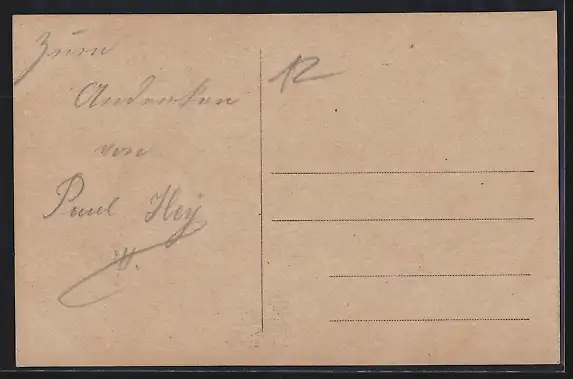 Zum
Andenken
von
Paul Hey
12